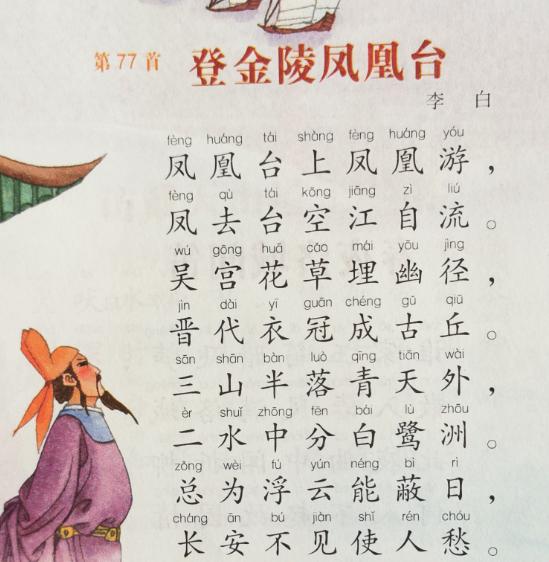 第77首 登金陵凤凰台
李 白
fèng huáng tái shàng fèng huáng yóu
凤凰台上凤凰游，
fèng qù tái kōng jiāng zì liú
凤去台空江自流。
wú gōng huā cǎo mái yōu jìng
吴宫花草埋幽径，
jìn dài yī guān chéng gǔ qiū
晋代衣冠成古丘。
sān shān bàn luò qīng tiān wài
三山半落青天外，
èr shuǐ zhōng fēn bái lù zhōu
二水中分白鹭洲。
zǒng wèi fú yún néng bì rì
总为浮云能蔽日，
cháng ān bú jiàn shǐ rén chóu
长安不见使人愁。